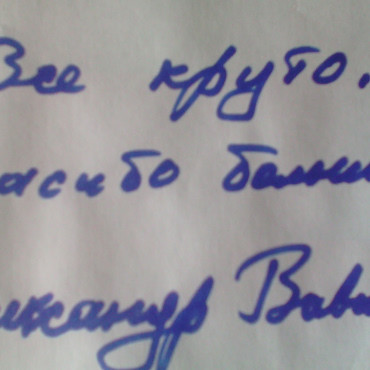 Все круто.
асибо больш
лександр Вави